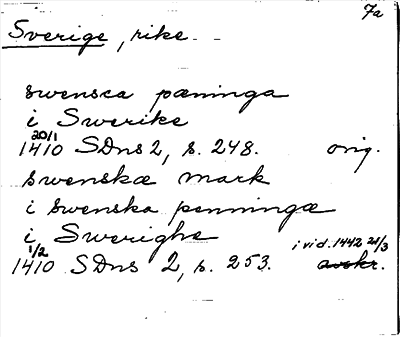 7a
Sverige, rike.
swensca pæninga
i Swerike
20/1
1410 SDns 2, s. 248. orig.
swenskæ mark
i swenska penningæ
i Swerighe
1/2 i vid. 1442 21/3
1410 SDns 2, s. 253. avskr.